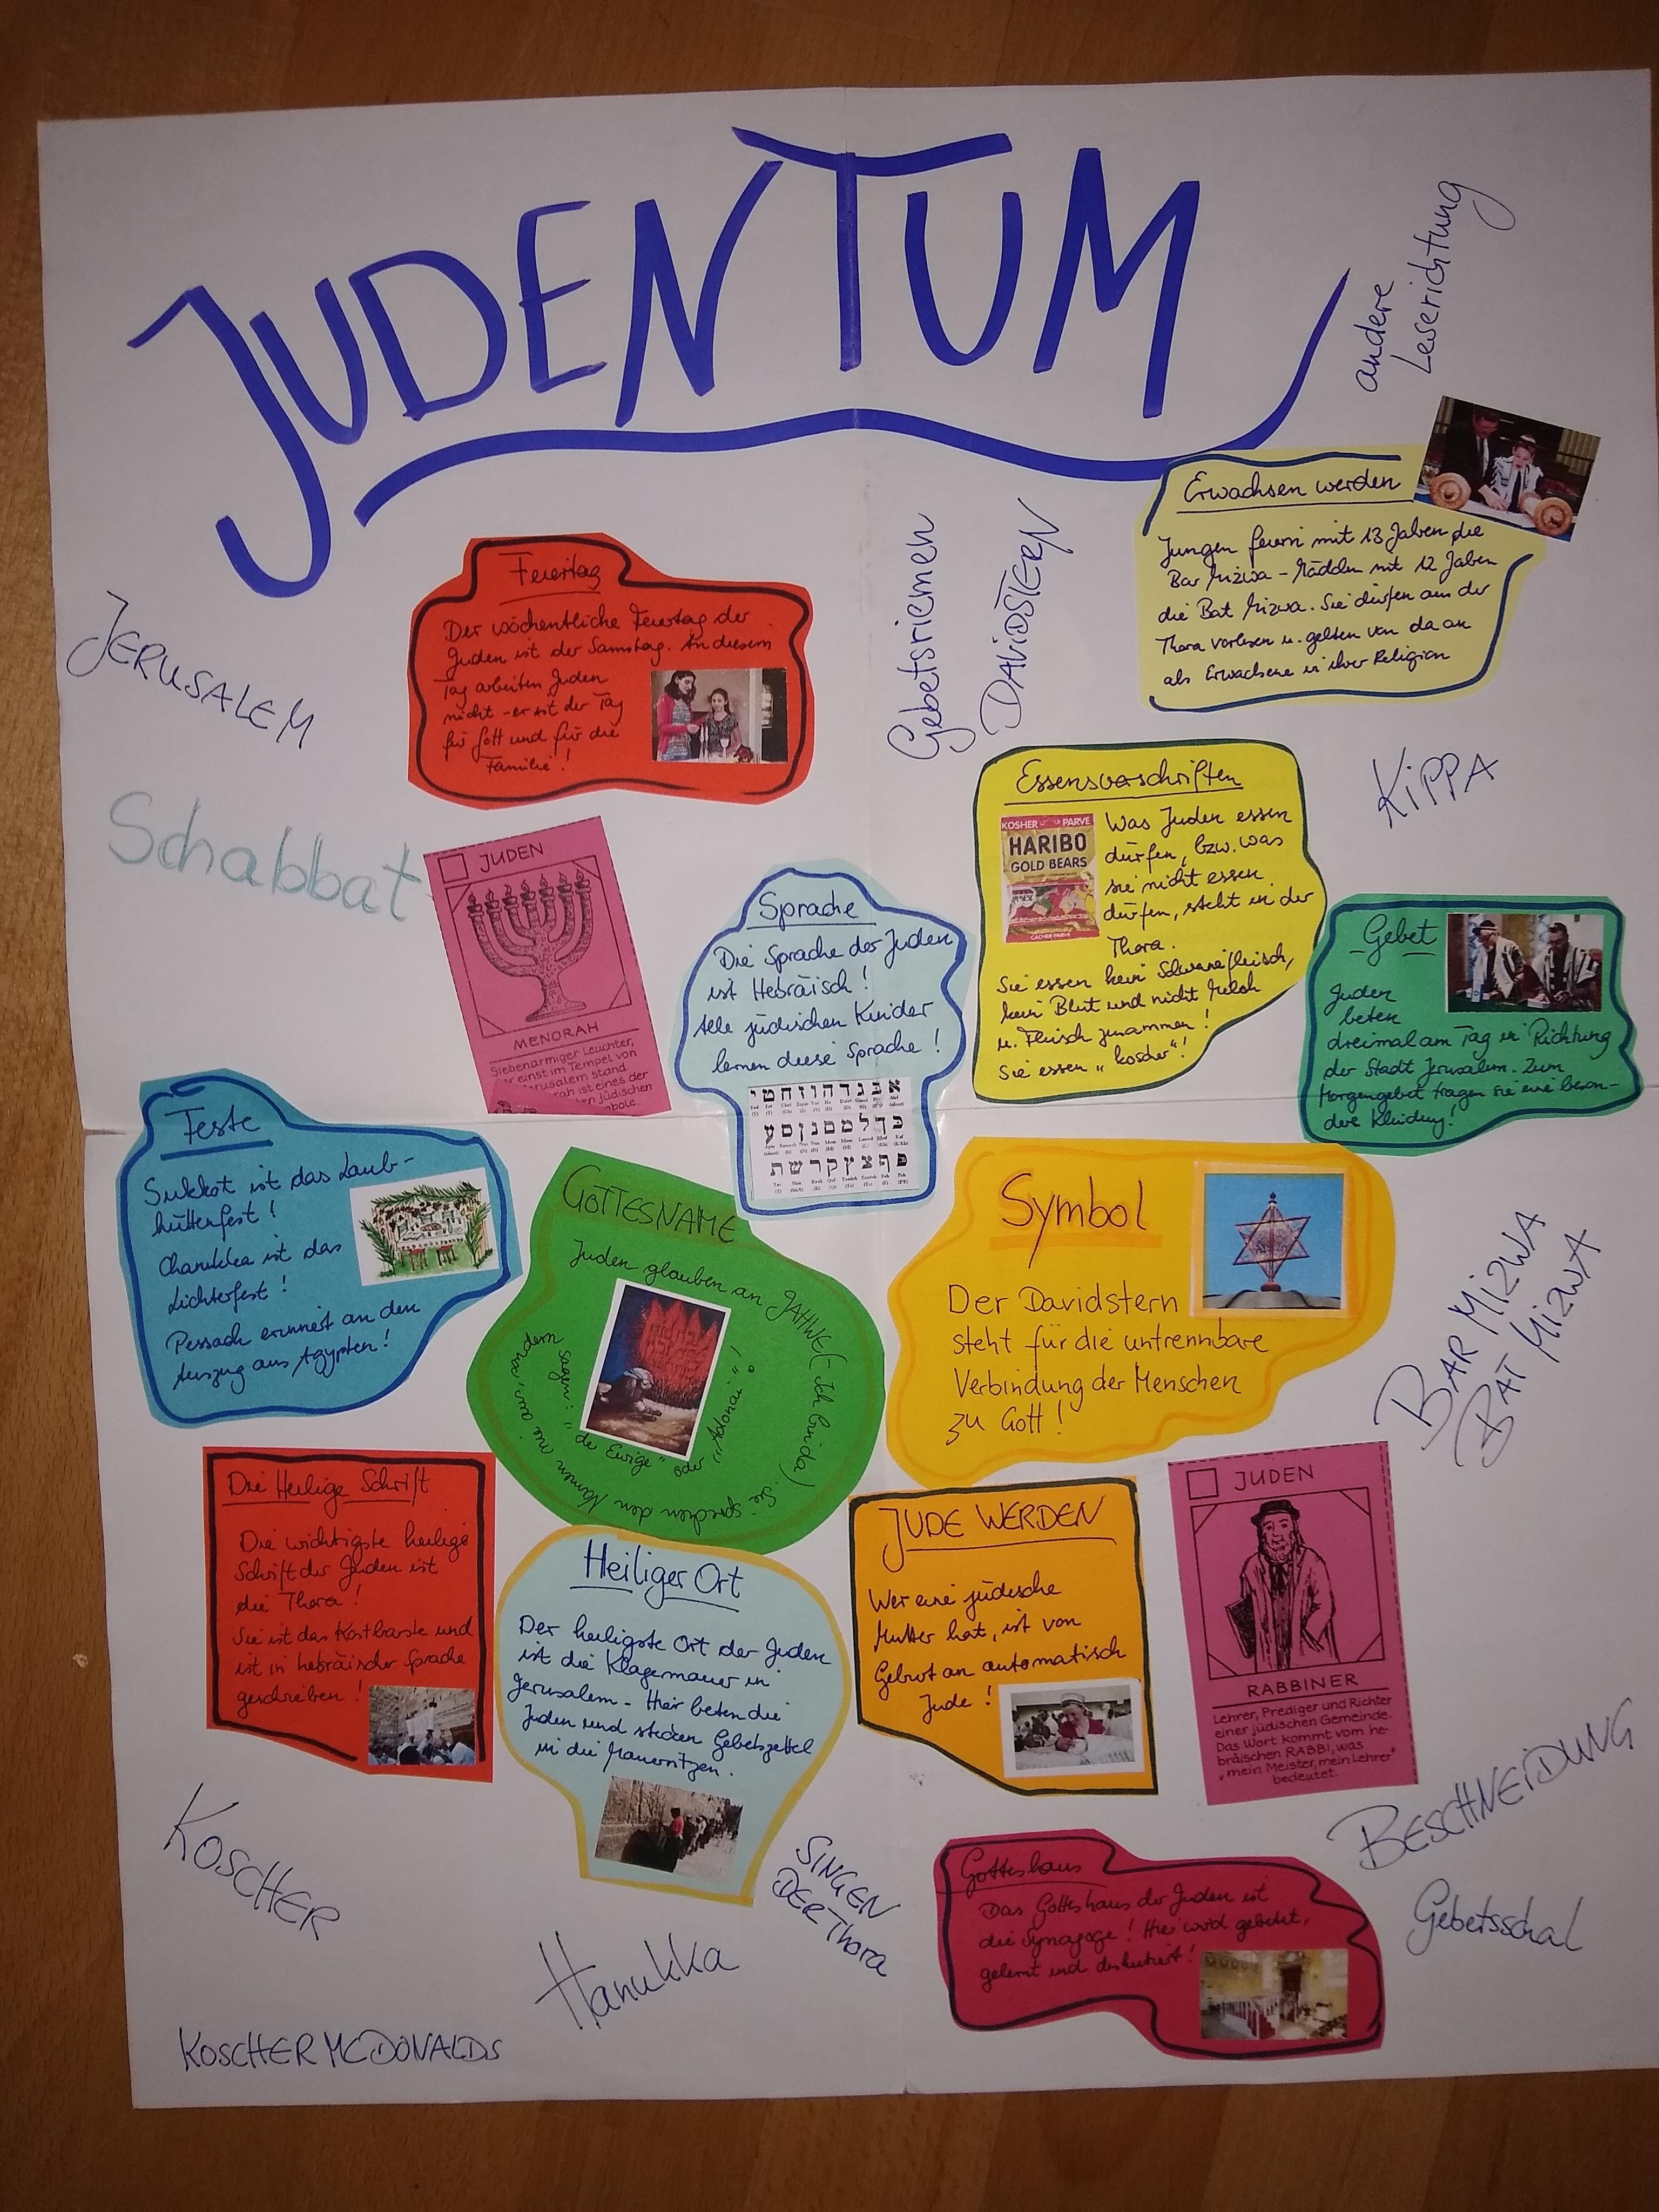 JUDENTUM
andere
Leserichtung
Erwachsen werden
Jungen feiern mit 13 Jahren die
Bar Mizwa - Mädchen mit 12 Jahren
die Bat Mizwa. Sie dürfen aus der
Thora vorlesen u. gelten von da an
als Erwachsene in ihrer Religion
Gebetsriemen
DAVIDSTERN
Feiertag
Der wöchentliche Feiertag der
Juden ist der Samstag. An diesem
Tag arbeiten Juden
nicht - er ist der Tag
für Gott und für die
Familie!
JERUSALEM
Schabbat
KIPPA
Essensvorschriften
KOSHER PARVE
HARIBO
GOLD BEARS
CACHER PARVE
Was Juden essen
dürfen, bzw. was
sie nicht essen
dürfen, steht in der
Thora.
Sie essen kein Schweinefleisch,
kein Blut und nicht Milch
u. Fleisch zusammen!
Sie essen "koscher"!
JUDEN
MENORAH
Siebenarmiger Leuchter,
einst im Tempel von
rusalem stand
rah ist eines der
en jüdischen
bole
Sprache
Die Sprache der Juden
ist Hebräisch!
Alle jüdischen Kinder
lernen diese Sprache!
א ב ג ד ה ו ז ח ט י
כ ך ל מ ם נ ן ס ע
פ ף צ ץ ק ר ש ת
Gebet
Juden
beten
dreimal am Tag in Richtung
der Stadt Jerusalem. Zum
Morgengebet tragen sie eine beson-
dere Kleidung!
Feste
Sukkot ist das Laub-
hüttenfest!
Chanukka ist das
Lichterfest!
Pessach erinnert an den
Auszug aus Ägypten!
GOTTESNAME
Juden glauben an JAHWE (- Ich bin da). Sie sprechen den Namen nie aus, son-
dern sagen: "der Ewige" oder "Adonai"!
Symbol
Der Davidstern
steht für die untrennbare
Verbindung der Menschen
zu Gott!
BAR MIZWA
BAT MIZWA
Die Heilige Schrift
Die wichtigste heilige
Schrift der Juden ist
die Thora!
Sie ist das Kostbarste und
ist in hebräischer Sprache
geschrieben!
Heiliger Ort
Der heiligste Ort der Juden
ist die Klagemauer in
Jerusalem - Hier beten die
Juden und stecken Gebetszettel
in die Mauerritzen.
JUDE WERDEN
Wer eine jüdische
Mutter hat, ist von
Geburt an automatisch
Jude!
JUDEN
RABBINER
Lehrer, Prediger und Richter
einer jüdischen Gemeinde.
Das Wort kommt vom he-
bräischen RABBI, was
"mein Meister, mein Lehrer"
bedeutet.
BESCHNEIDUNG
Gebetsschal
KOSCHER
SINGEN
DER Thora
Hanukka
KOSCHER MCDONALDS
Gotteshaus
Das Gotteshaus der Juden ist
die Synagoge! Hier wird gebetet,
gelernt und diskutiert!